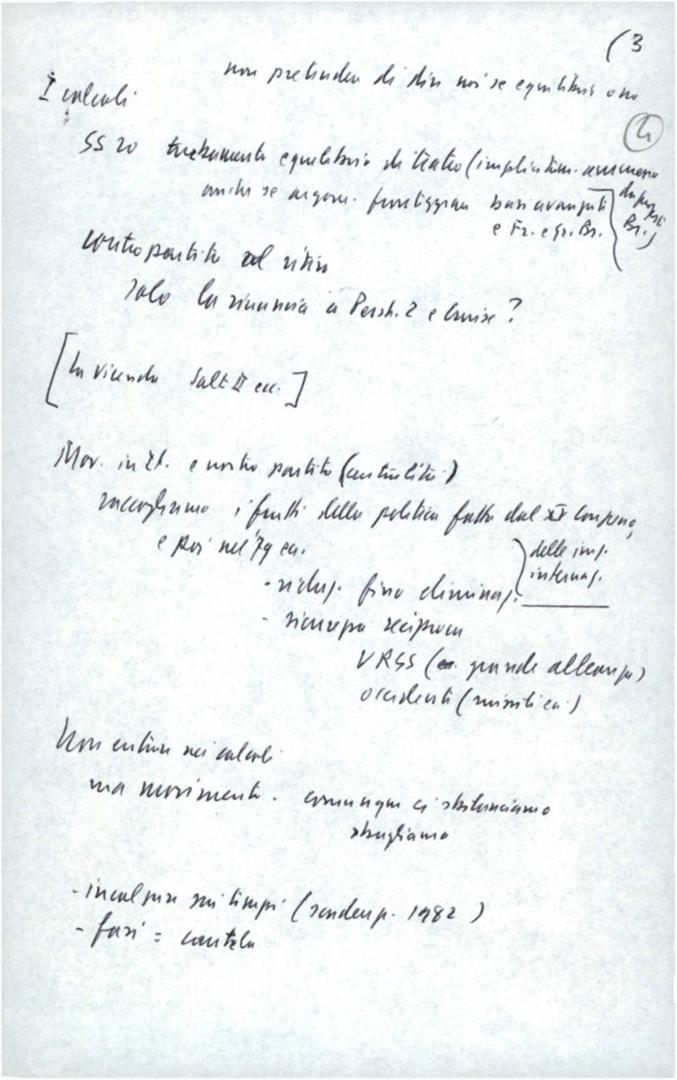 (3
non pretendere di dire noi se equilibrio o no
I calcoli
(4)
SS 20 equilibrio di teatro (
anche se argom. fronteggiano basi avanzate
e Fr. e Gr. Br.
da parte
Br.)
contropartita al ritiro
solo la rinuncia a Persh. 2 e Cruise?
[la vicenda Salt II ecc.]
Mov. in It. e nostro partito (centralità)
raccogliamo i frutti della politica fatta dal XV Congresso
e poi nel '79 ecc.
delle imp.
internaz.
- riduz. fino eliminaz.
- sicurezza reciproca
URSS ( grande alleanza)
occidente (missili ecc.)
Non entrare nei calcoli
ma movimento. comunque ci sbilanciamo
sbagliamo
- incalzare sui tempi (scadenz. 1982)
- fasi = cautela